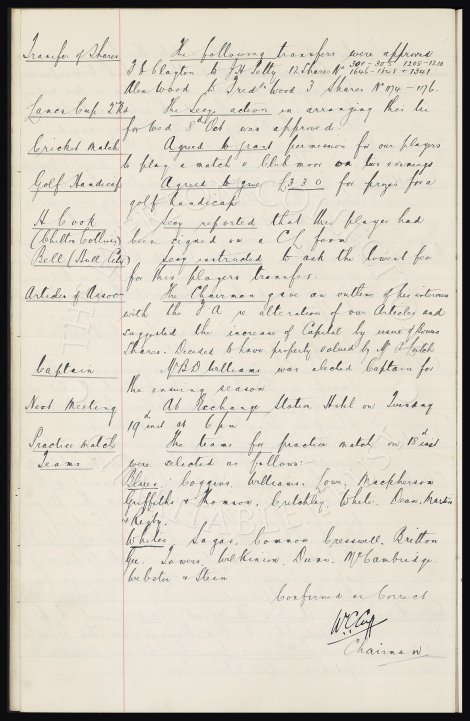 Transfer of Shares The following transfers were approved
to J H Petty 12 Shares Nos 301 - 305 1208-1210
1341
Alex Wood to Fredk Wood 3 Shares No 1174 - 1176.
Lancs Cup 2nd Rd The Secys action in arranging this tie
for Wed 8th Oct was approved.
Cricket Match Agreed to grant permission for our players
to play a match v Club moor on two evenings
Golf Handicap Agreed to give £3 3 0 for prizes for a
golf handicap
H Cook Secy reported that this player had
(Chilton Colliery) been signed on a CL form
Bell (Hull City) Secy instructed to ask the lowest fee
for this players transfer.
Articles of Assoc The Chairman gave an outline of his interview
with the F A re alteration of our Articles and
suggested the increase of Capital by issue of Bonus
Shares. Decided to have property valued by Mr
Captain Mr B D Williams was elected Captain for
the ensuing season
Next Meeting At Exchange Station Hotel on Tuesday
19 inst at 6 pm
Practice Match The teams for practice match on 18th inst
Teams were selected as follows:
Blues. Coggins, Williams, Lowe, Macpherson
Griffiths & Thomson, Critchley, White, Dean, Martin
& Rigby.
Whites Sagar, Common Cresswell, Britton
Gee. Towers, Wilkinson, Dunn, McCambridge
Webster & Stein
Confirmed as Correct
W.C. Cuff
Chairman